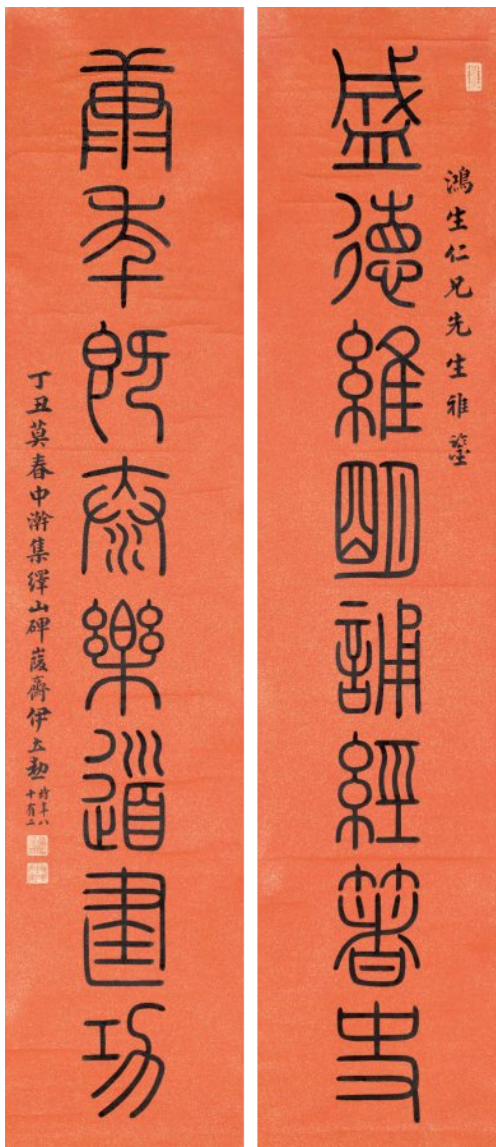 鴻生仁兄先生雅鑒
盛德維明誦經著史
康年既泰樂道建功
丁丑莫春中澣集繹山碑峻齋伊立勳
時年八
十有二